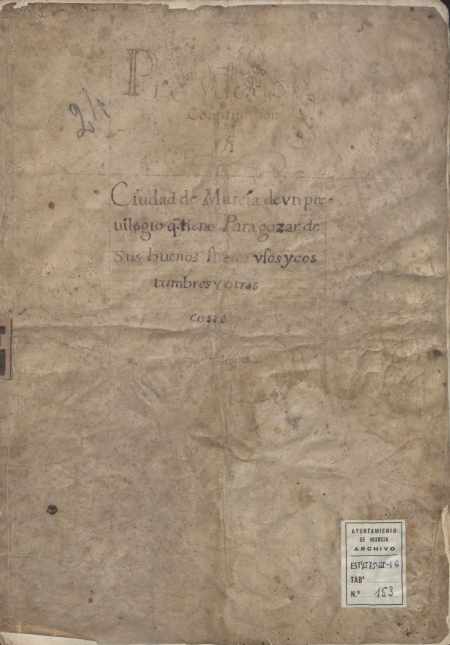 24
Confirmacion
A
Ciudad de Murcia de vn pre-
uilegio q̃ tiene Para gozar de
Sus buenos fueros vsos y cos
tumbres y otras
cosas
AYUNTAMIENTO
DE MURCIA
ARCHIVO
EST
TAB^a
N.° 153